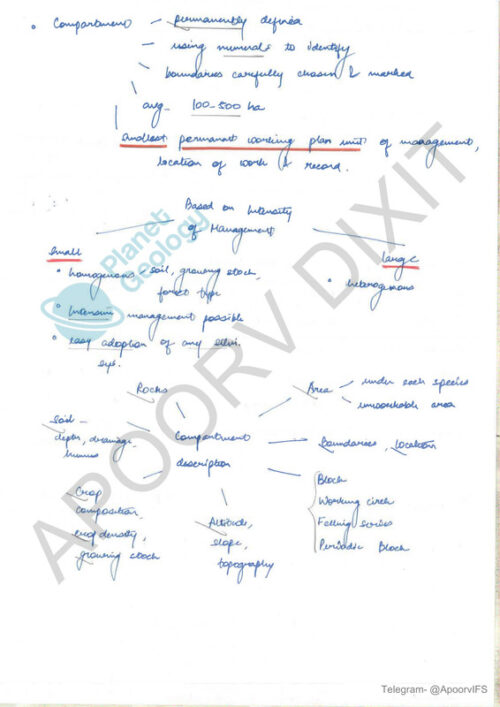 • Compartment — permanently defined
— using numerals to identify
— boundaries carefully chosen & marked
avg – 100-500 ha
smallest permanent working plan unit of management,
location of work & record.
Based on Intensity
of Management
Small
large
• homogenous – soil, growing stock,
forest type
• heterogenous
• Intensive management possible
• easy adoption of any silvi.
sys.
Planet
Geology
APOORV DIXIT
Rocks
Area — under each species
— unworkable area
Soil –
depth, drainage,
humus
Compartment
description
Boundaries, Location
Crop
composition
crop density,
growing stock
Altitude,
slope,
topography
Block
Working circle
Felling series
Periodic Block
Telegram- @ApoorvIFS